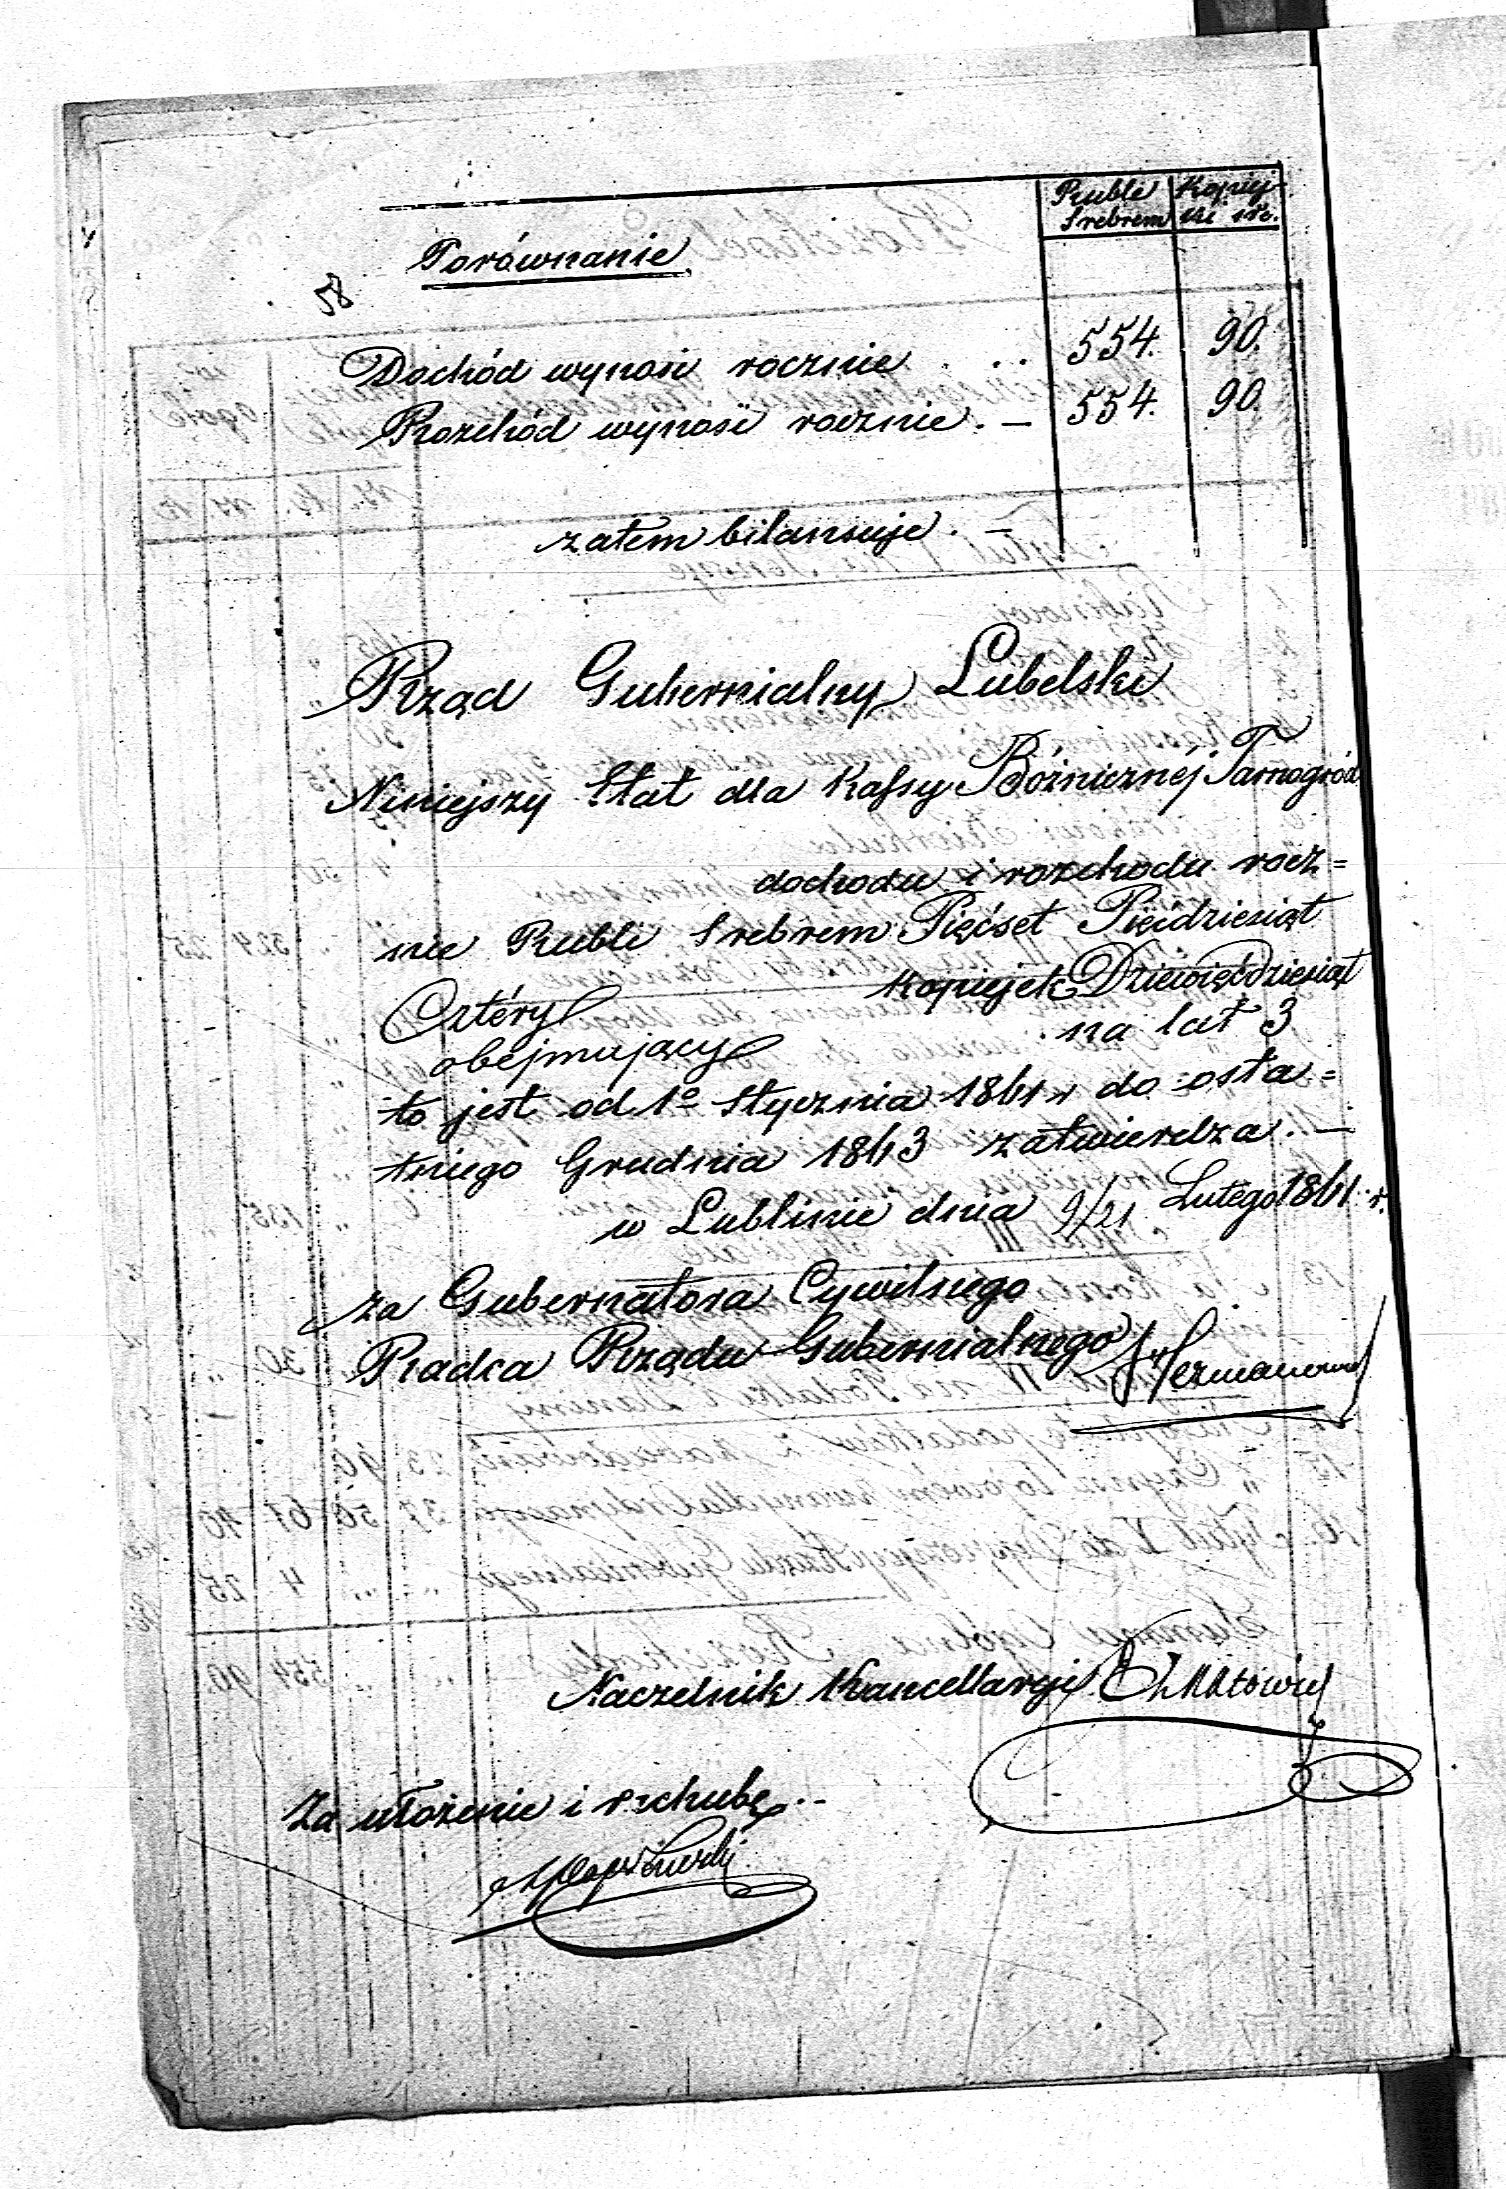 Ruble Srebrem | Kopiej= ki sr.
Porównanie
58
Dochód wynosi rocznie . . . 554. 90.
Rozchód wynosi rocznie. — 554. 90.
zatem bilansuje. —
Rząd Gubernialny Lubelski
Niniejszy Etat dla Kassy Bóżnicznéj Tarnogród
dochodu i rozchodu rocz=
nie Rubli Srebrem Pięćset Pięćdziesiąt
Cztéry kopiejek Dziewięćdziesiąt
obejmujący na lat 3
to jest od 1º Stycznia 1861 r do osta=
tniego Grudnia 1863 zatwierdza. —
w Lublinie dnia 9/21 Lutego 1861 r.
za Gubernatora Cywilnego
Radca Rządu Gubernialnego
Naczelnik Kancellaryi
Za ułożenie i rachubę